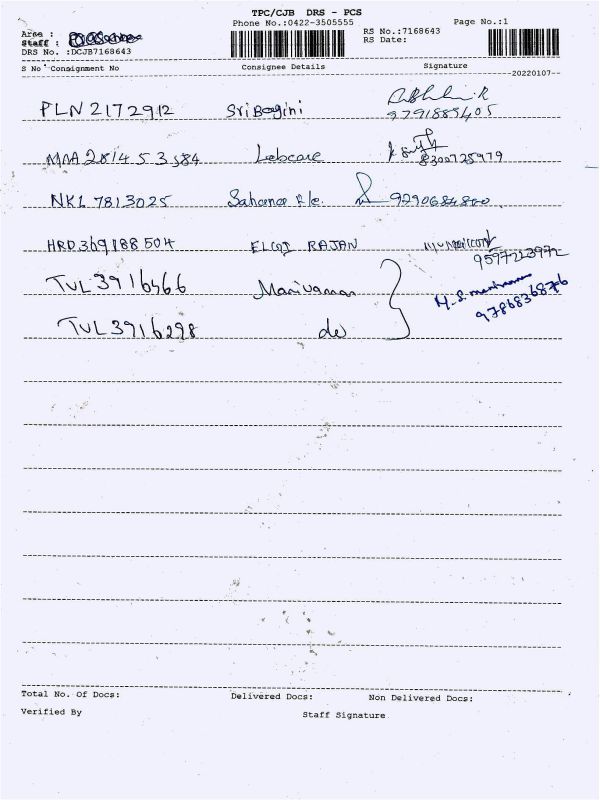 TPC/CJB DRS - PCS
Phone No.:0422-3505555 Page No.:1
Area : RS No.:7168643
Staff : RS Date:
DRS No. :DCJB7168643
S No Consignment No Consignee Details Signature
--20220107--
PLN 2172912 Sri Bagini
9791885405
MAA 281453584 Labcare 8300725979
NKL 7813025 Sahana Ele. 9290684800
HRD369188504 ELCOT RAJAN
9597223972
TVL 3916466 Manivannan
9786836876
TVL 3916298 do
Total No. Of Docs: Delivered Docs: Non Delivered Docs:
Verified By Staff Signature